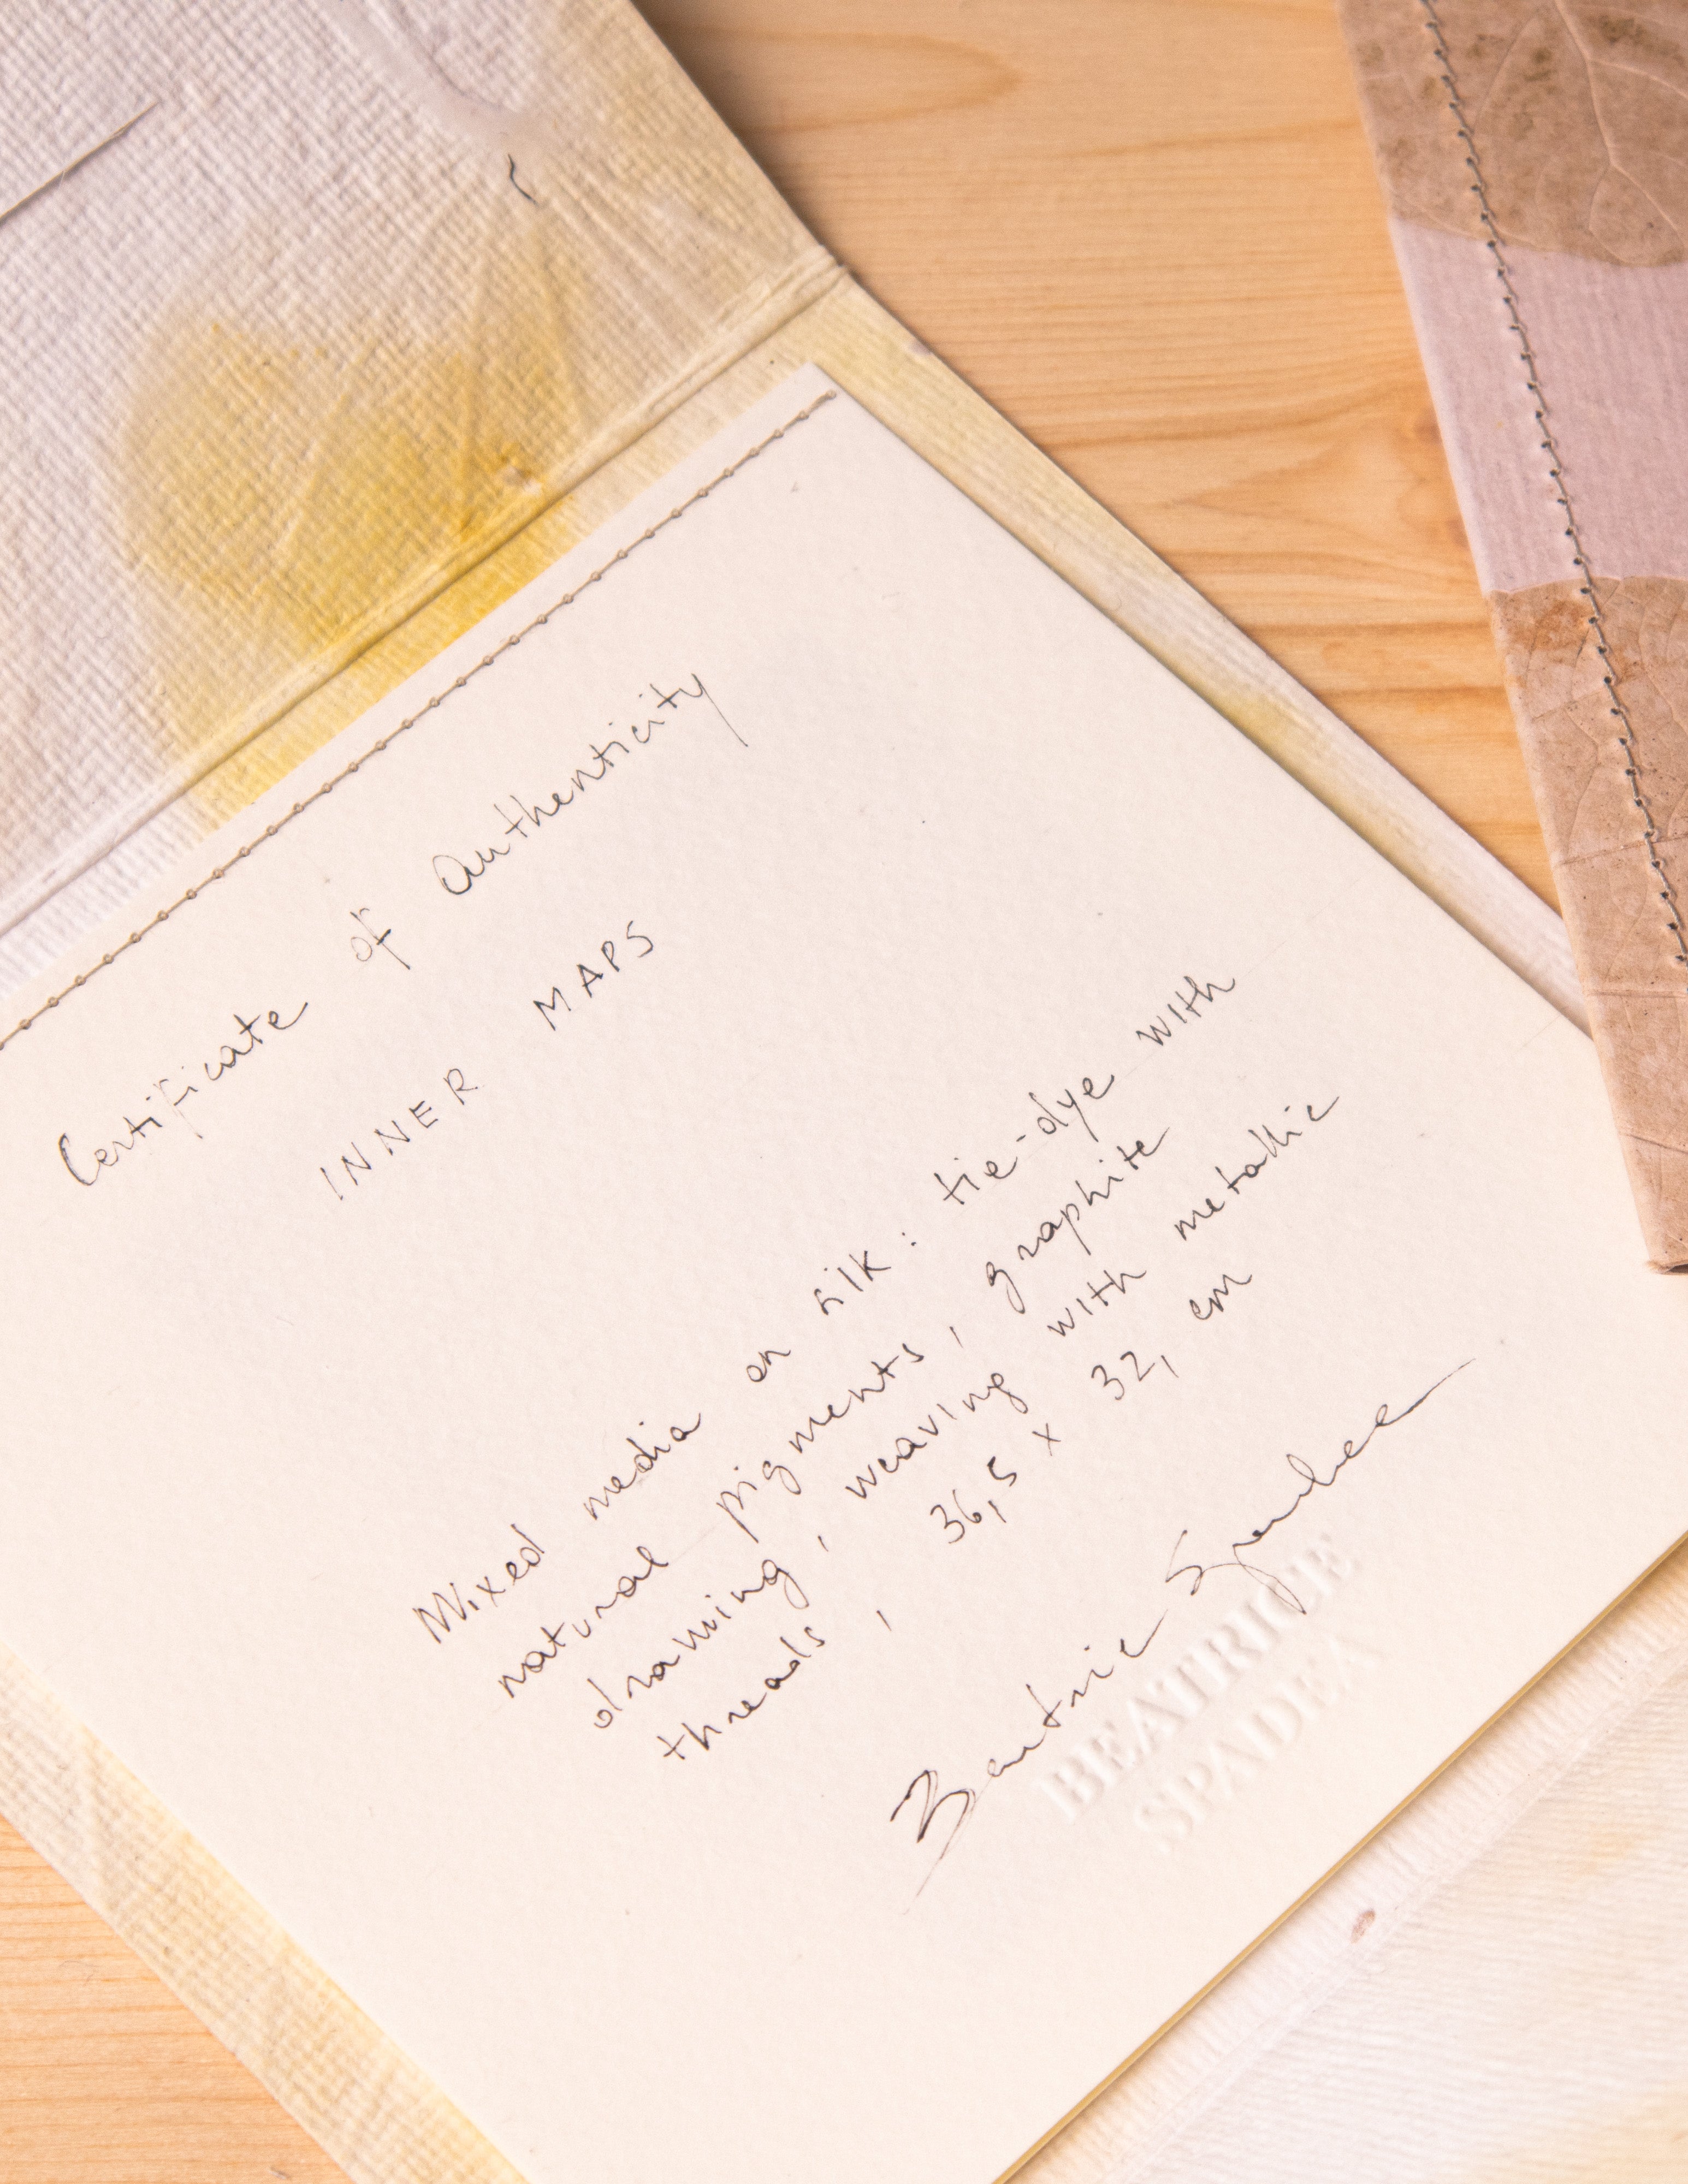 Certificate of Authenticity
INNER MAPS
Mixed media on silk: tie-dye with
natural pigments, graphite
drawing, weaving with metallic
threads, 36,5 x 32, cm
Beatrice Spadea
BEATRICE
SPADEA